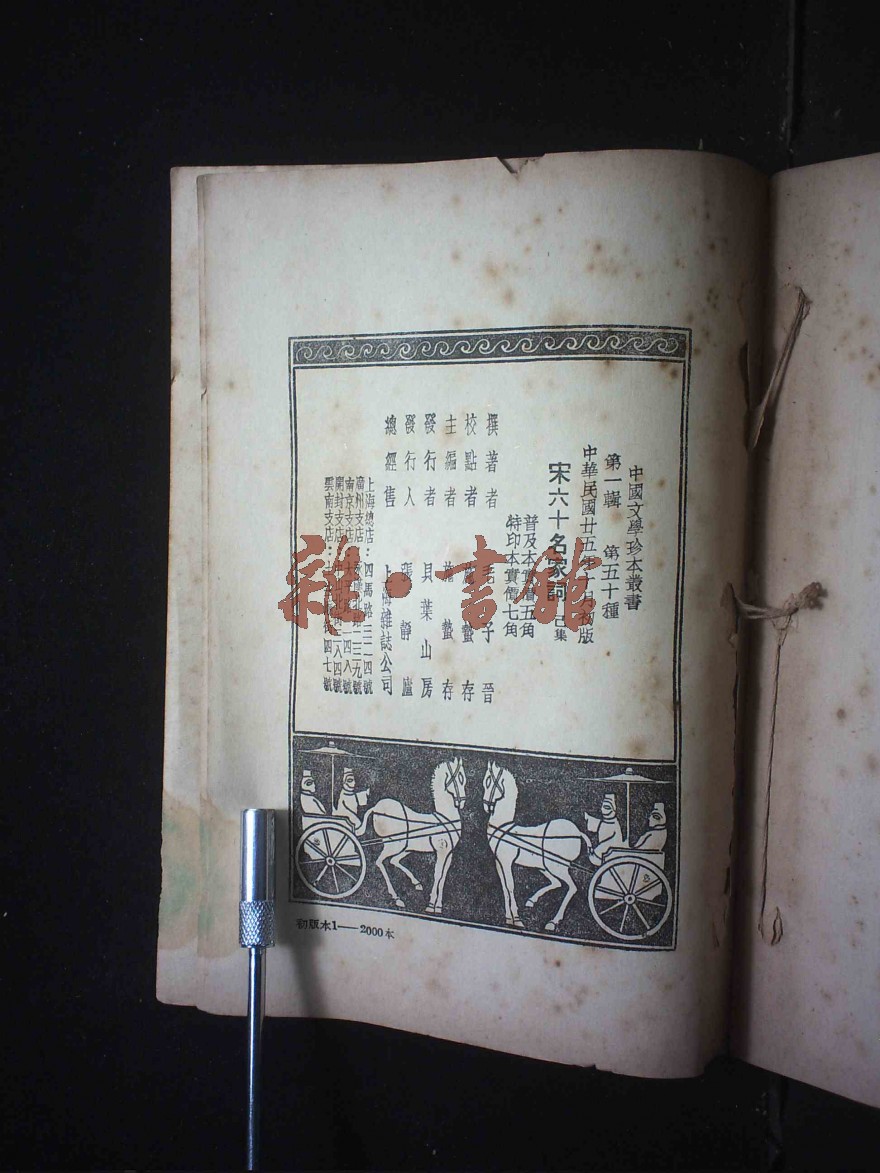 中國文學珍本叢書
第一輯 第五十種
中華民國廿五年十月初版
宋六十名家詞 己集
普及本實價五角
特印本實價七角
撰著者 毛子晉
校點者 施蟄存
主編者 施蟄存
發行者 貝葉山房
發行人 張靜廬
總經售 上海雜誌公司
上海總店：四馬路三二四號
廣州支店 北路一三九號
南京支店 一四八號
開封支店 八四號
雲南支店： 四七號
初版本1——2000本
雜·書館